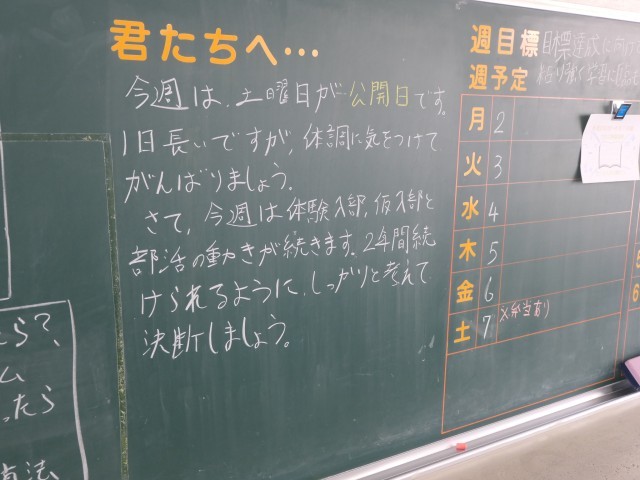 君たちへ…
今週は、土曜日が公開日です。
1日長いですが、体調に気をつけて
がんばりましょう。
さて、今週は体験入部、仮入部と
部活の動きが続きます。2年間続
けられるように、しっかりと考えて
決断しましょう。
週目標 目標達成に向け
週予定
月 2
火 3
水 4
木 5
金 6
土 7 ※弁当あり
ら?、
ム
ったら